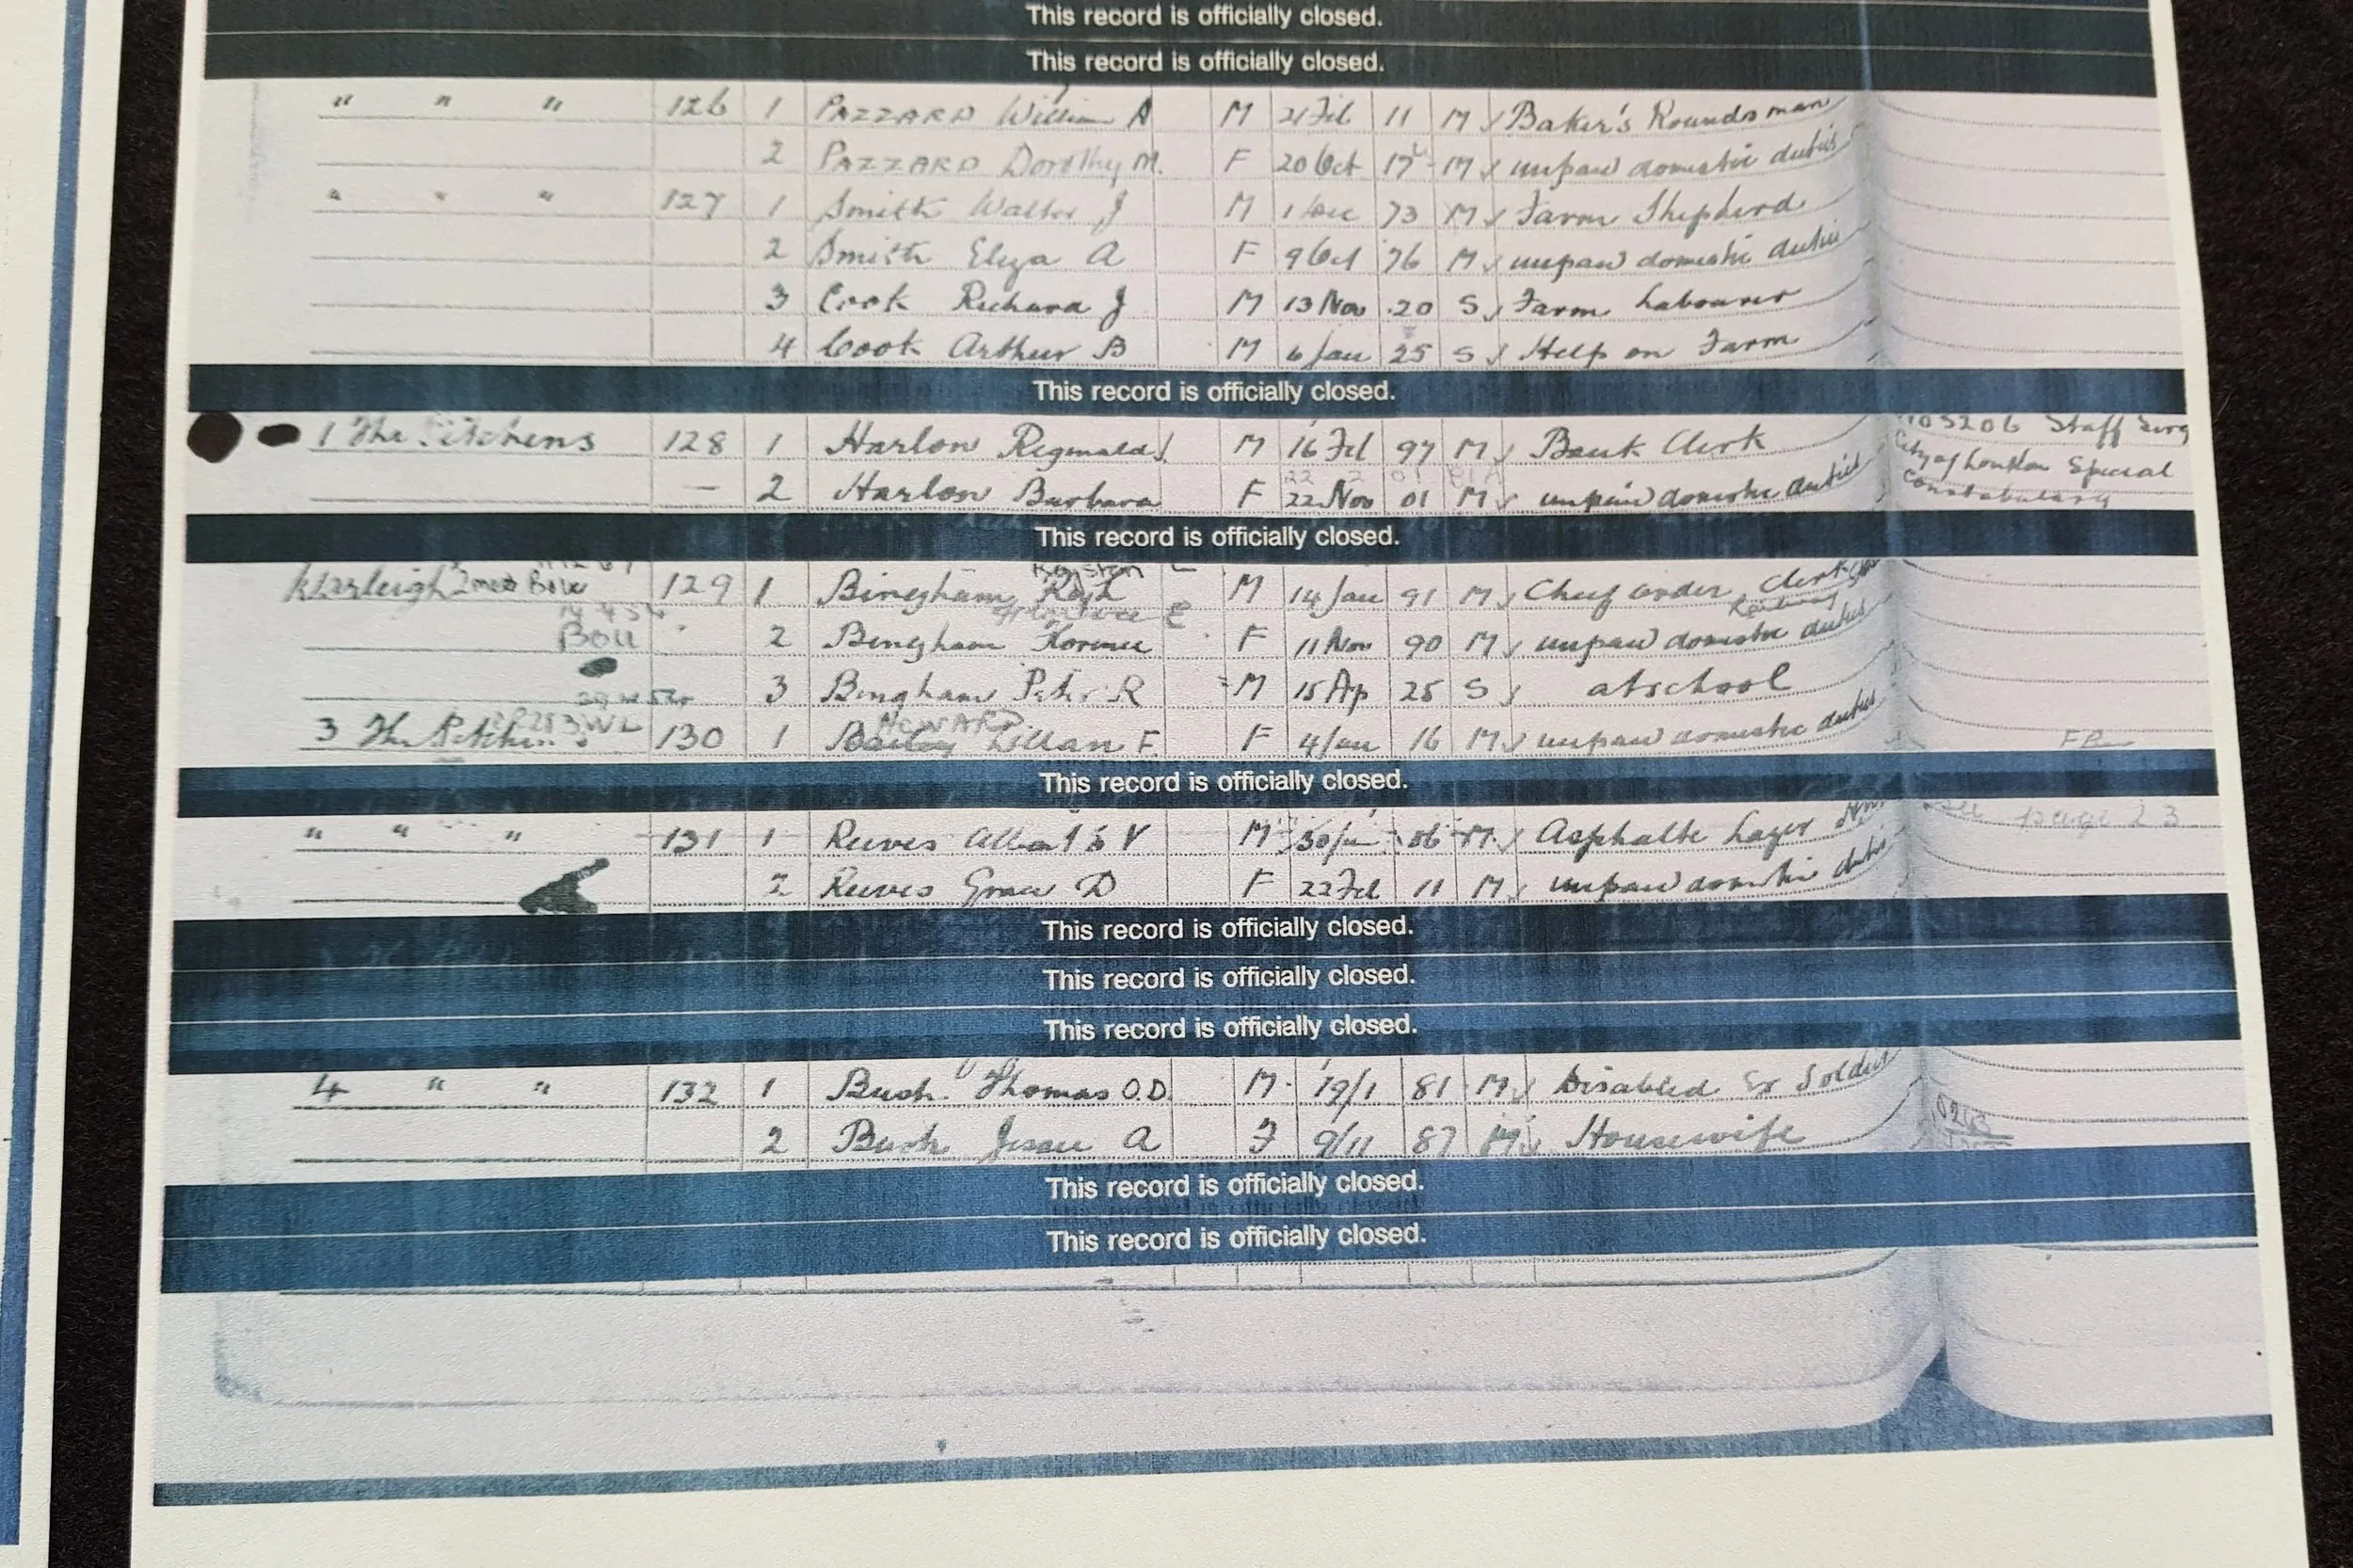 This record is officially closed.
This record is officially closed.
" " " 126 1 PAZZARD William A M 21 Feb 11 M Baker's Roundsman
2 PAZZARD Dorothy M. F 20 Oct 17 M unpaid domestic duties
" " " 127 1 Smith Walter J M 1 Dec 73 M Farm Shepherd
2 Smith Eliza A F 9 Oct 76 M unpaid domestic duties
3 Cook Richard J M 13 Nov 20 S Farm Labourer
4 Cook Arthur B M 6 Jan 25 S Help on Farm
This record is officially closed.
1 The 128 1 Harlow Reginald M 16 Feb 97 M Bank Clerk Staff
City of London Special
— 2 Harlow Barbara F 22 Nov 01 M unpaid domestic duties Constabulary
This record is officially closed.
129 1 Bingham M 14 Jan 91 M Clerk
Railway
2 Bingham Florence F 11 Nov 90 M unpaid domestic duties
3 Bingham Peter R M 15 Ap 25 S at school
HOWARD
3 The 130 1 Bailey Lillan F. F 4 Jan 16 M unpaid domestic duties
This record is officially closed.
" " " 131 1 Reeves V M 30 M Asphalte Layer See page 23
2 Reeves Grace D F 22 Feb 11 M unpaid domestic duties
This record is officially closed.
This record is officially closed.
This record is officially closed.
4 " " 132 1 Bush Thomas O.D. M 19/1 81 M Disabled Ex Soldier
2 Bush Jessie A F 9/11 87 M Housewife
This record is officially closed.
This record is officially closed.